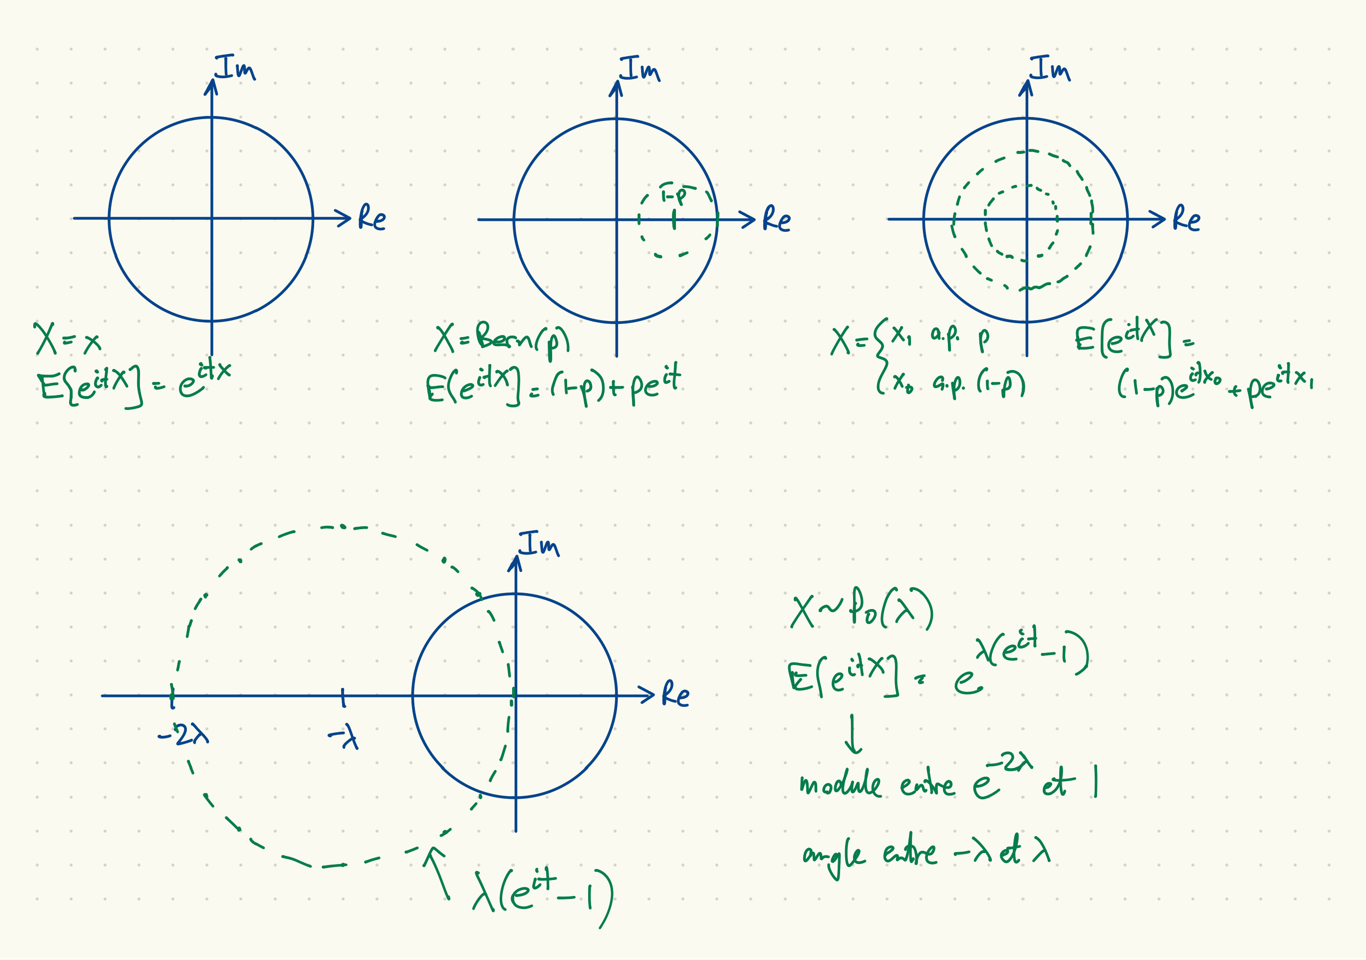 Im
Re
X = x
E[e^{itX}] = e^{itx}
Im
1-p
Re
X = Bern(p)
E[e^{itX}] = (1-p) + pe^{it}
Im
Re
X = { x₁ a.p. p
x₀ a.p. (1-p)
E[e^{itX}] =
(1-p)e^{itx₀} + pe^{itx₁}
Im
Re
-2λ
-λ
λ(e^{it} - 1)
X ~ Po(λ)
E[e^{itX}] = e^{λ(e^{it} - 1)}
↓
module entre e^{-2λ} et 1
angle entre -λ et λ